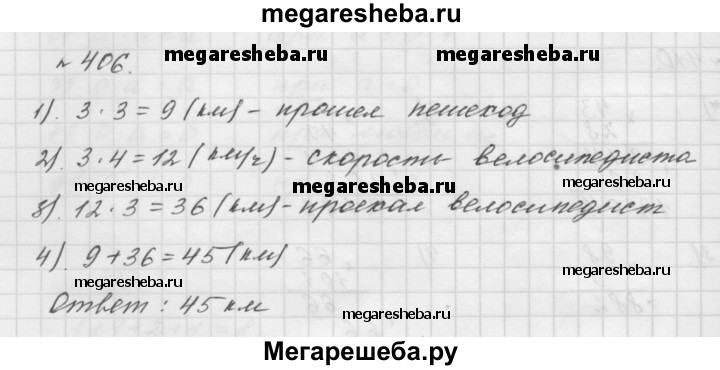 megaresheba.ru
№ 406. megaresheba.ru megaresheba.ru
1). 3 · 3 = 9 (км) - прошел пешеход
2). 3 · 4 = 12 (км/ч) - скорость велосипедиста
megaresheba.ru megaresheba.ru megaresheba.ru
3). 12 · 3 = 36 (км) - проехал велосипедист
4). 9 + 36 = 45 (км)
megaresheba.ru megaresheba.ru megaresheba.ru
Ответ : 45 км
Мегарешеба.ру